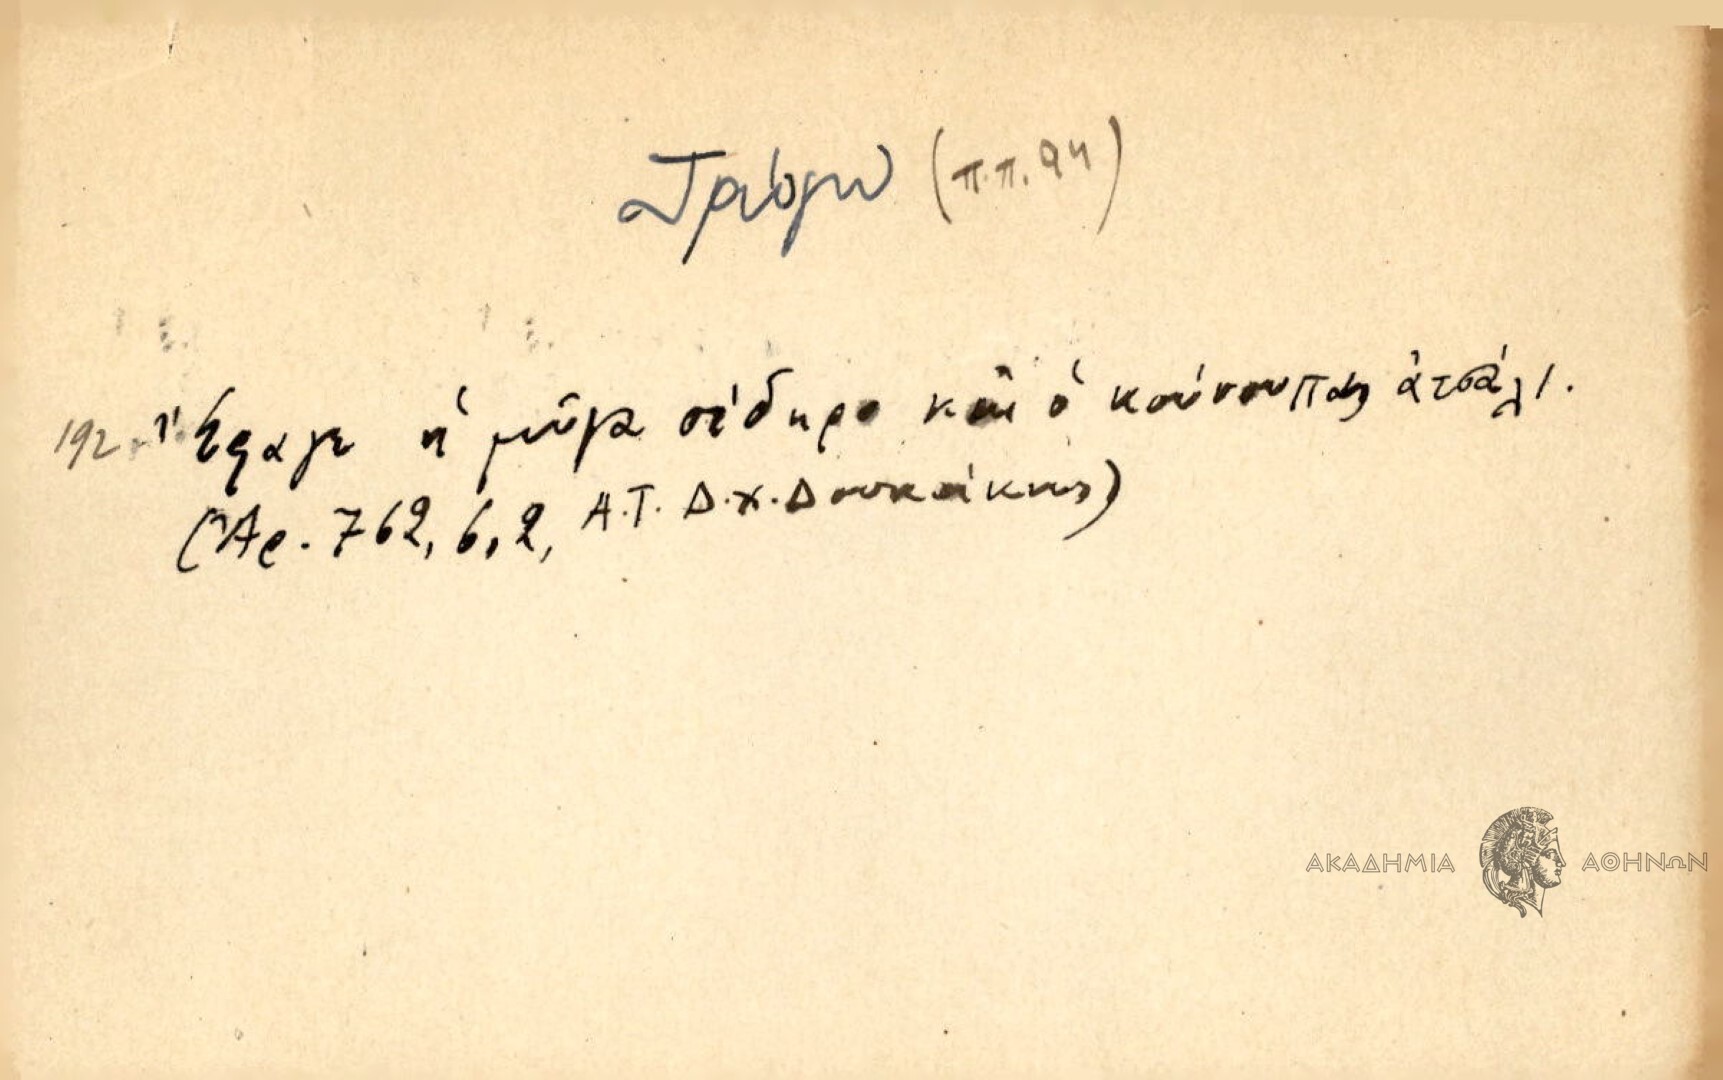 Τρώγω (π.π. 94)
192. Ἔφαγε ἡ μῦγα σίδηρο καὶ ὁ κούνουπας ἀτσάλι.
(Ἀρ. 762, 6, 2, Α.Τ. Δ.Χ. Δουκάκης)
ΑΚΑΔΗΜΙΑ ΑΘΗΝΩΝ